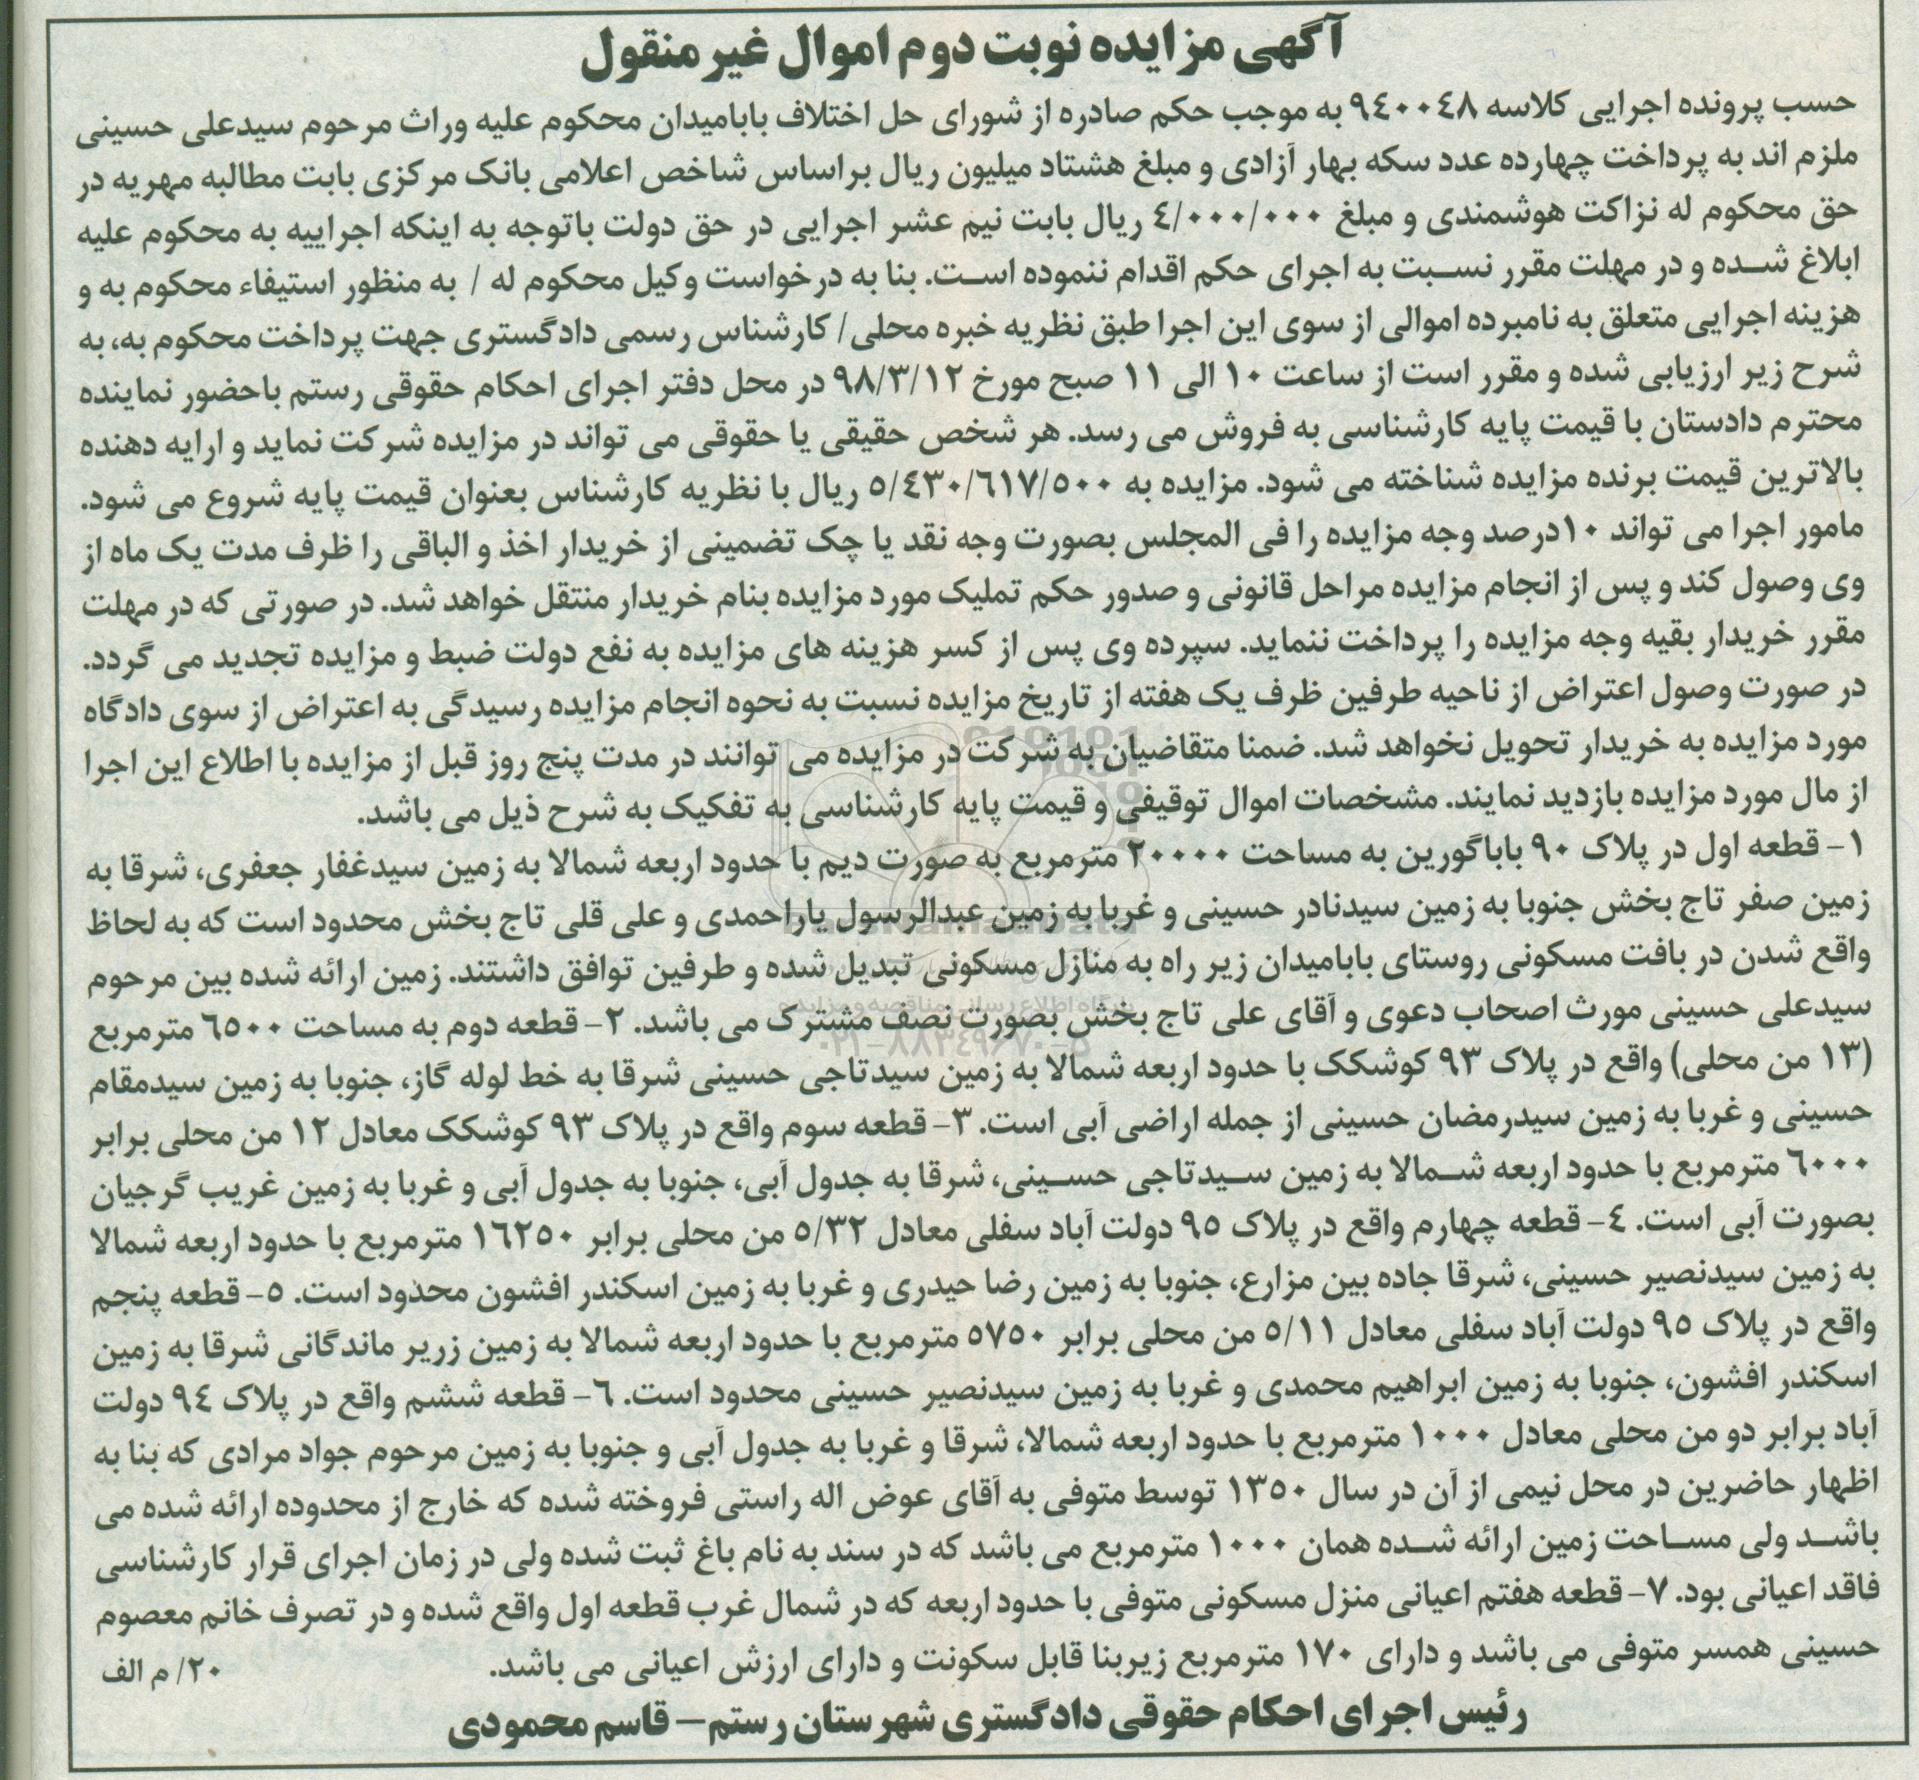 آگهی مزایده نوبت دوم اموال غیر منقول
حسب پرونده اجرایی کلاسه ٩٤٠٠٤٨ به موجب حکم صادره از شورای حل اختلاف بابامیدان محکوم علیه وراث مرحوم سیدعلی حسینی
ملزم اند به پرداخت چهارده عدد سکه بهار آزادی و مبلغ هشتاد میلیون ریال براساس شاخص اعلامی بانک مرکزی بابت مطالبه مهریه در
حق محکوم له نزاکت هوشمندی و مبلغ ٤/٠٠٠/٠٠٠ ریال بابت نیم عشر اجرایی در حق دولت باتوجه به اینکه اجراییه به محکوم علیه
ابلاغ شده و در مهلت مقرر نسبت به اجرای حکم اقدام ننموده است. بنا به درخواست وکیل محکوم له / به منظور استیفاء محکوم به و
هزینه اجرایی متعلق به نامبرده اموالی از سوی این اجرا طبق نظریه خبره محلی/ کارشناس رسمی دادگستری جهت پرداخت محکوم به، به
شرح زیر ارزیابی شده و مقرر است از ساعت ١٠ الی ١١ صبح مورخ ٩٨/٣/١٢ در محل دفتر اجرای احکام حقوقی رستم باحضور نماینده
محترم دادستان با قیمت پایه کارشناسی به فروش می رسد. هر شخص حقیقی یا حقوقی می تواند در مزایده شرکت نماید و ارایه دهنده
بالاترین قیمت برنده مزایده شناخته می شود. مزایده به ٥/٤٣٠/٦١٧/٥٠٠ ریال با نظریه کارشناس بعنوان قیمت پایه شروع می شود.
مامور اجرا می تواند ١٠درصد وجه مزایده را فی المجلس بصورت وجه نقد یا چک تضمینی از خریدار اخذ و الباقی را ظرف مدت یک ماه از
وی وصول کند و پس از انجام مزایده مراحل قانونی و صدور حکم تملیک مورد مزایده بنام خریدار منتقل خواهد شد. در صورتی که در مهلت
مقرر خریدار بقیه وجه مزایده را پرداخت ننماید. سپرده وی پس از کسر هزینه های مزایده به نفع دولت ضبط و مزایده تجدید می گردد.
در صورت وصول اعتراض از ناحیه طرفین ظرف یک هفته از تاریخ مزایده نسبت به نحوه انجام مزایده رسیدگی به اعتراض از سوی دادگاه
مورد مزایده به خریدار تحویل نخواهد شد. ضمنا متقاضیان به شرکت در مزایده می توانند در مدت پنج روز قبل از مزایده با اطلاع این اجرا
از مال مورد مزایده بازدید نمایند. مشخصات اموال توقیفی و قیمت پایه کارشناسی به تفکیک به شرح ذیل می باشد.
١- قطعه اول در پلاک ٩٠ باباگورین به مساحت ٢٠٠٠٠ مترمربع به صورت دیم با حدود اربعه شمالا به زمین سیدغفار جعفری، شرقا به
زمین صفر تاج بخش جنوبا به زمین سیدنادر حسینی و غربا به زمین عبدالرسول یاراحمدی و علی قلی تاج بخش محدود است که به لحاظ
واقع شدن در بافت مسکونی روستای بابامیدان زیر راه به منازل مسکونی تبدیل شده و طرفین توافق داشتند. زمین ارائه شده بین مرحوم
سیدعلی حسینی مورث اصحاب دعوی و آقای علی تاج بخش بصورت نصف مشترک می باشد. ٢- قطعه دوم به مساحت ٦٥٠٠ مترمربع
(١٣ من محلی) واقع در پلاک ٩٣ کوشکک با حدود اربعه شمالا به زمین سیدتاجی حسینی شرقا به خط لوله گاز، جنوبا به زمین سیدمقام
حسینی و غربا به زمین سیدرمضان حسینی از جمله اراضی آبی است. ٣- قطعه سوم واقع در پلاک ٩٣ کوشکک معادل ١٢ من محلی برابر
٦٠٠٠ مترمربع با حدود اربعه شمالا به زمین سیدتاجی حسینی، شرقا به جدول آبی، جنوبا به جدول آبی و غربا به زمین غریب گرجیان
بصورت آبی است. ٤- قطعه چهارم واقع در پلاک ٩٥ دولت آباد سفلی معادل ٥/٣٢ من محلی برابر ١٦٢٥٠ مترمربع با حدود اربعه شمالا
به زمین سیدنصیر حسینی، شرقا جاده بین مزارع، جنوبا به زمین رضا حیدری و غربا به زمین اسکندر افشون محدود است. ٥- قطعه پنجم
واقع در پلاک ٩٥ دولت آباد سفلی معادل ٥/١١ من محلی برابر ٥٧٥٠ مترمربع با حدود اربعه شمالا به زمین زریر ماندگانی شرقا به زمین
اسکندر افشون، جنوبا به زمین ابراهیم محمدی و غربا به زمین سیدنصیر حسینی محدود است. ٦- قطعه ششم واقع در پلاک ٩٤ دولت
آباد برابر دو من محلی معادل ١٠٠٠ مترمربع با حدود اربعه شمالا، شرقا و غربا به جدول آبی و جنوبا به زمین مرحوم جواد مرادی که بنا به
اظهار حاضرین در محل نیمی از آن در سال ١٣٥٠ توسط متوفی به آقای عوض اله راستی فروخته شده که خارج از محدوده ارائه شده می
باشد ولی مساحت زمین ارائه شده همان ١٠٠٠ مترمربع می باشد که در سند به نام باغ ثبت شده ولی در زمان اجرای قرار کارشناسی
فاقد اعیانی بود. ٧- قطعه هفتم اعیانی منزل مسکونی متوفی با حدود اربعه که در شمال غرب قطعه اول واقع شده و در تصرف خانم معصوم
حسینی همسر متوفی می باشد و دارای ١٧٠ مترمربع زیربنا قابل سکونت و دارای ارزش اعیانی می باشد.
٢٠/ م الف
رئیس اجرای احکام حقوقی دادگستری شهرستان رستم– قاسم محمودی